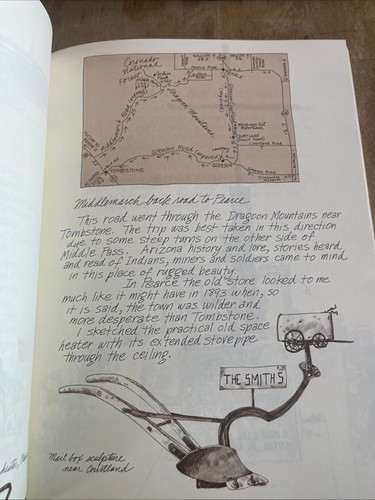 Coronado
National
Forest
Pearce Road
Dragoon Mountains
Middlemarch Road
Gleeson Road
TOMBSTONE
GLEESON
COURTLAND
Middlemarch back road to Pearce
This road went through the Dragoon Mountains near
Tombstone. The trip was best taken in this direction
due to some steep turns on the other side of
Middle Pass. Arizona history and lore, stories heard
and read of Indians, miners and soldiers came to mind
in this place of rugged beauty.
In Pearce the old store looked to me
much like it might have in 1893 when, so
it is said, the town was wilder and
more desperate than Tombstone.
I sketched the practical old space
heater with its extended stovepipe
through the ceiling.
THE SMITHS
Mail box sculpture
near Courtland